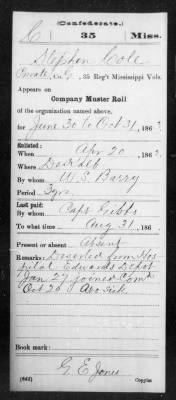 (Confederate.)
C 35 Miss.
Stephen Cole
Private, Co. G, 35 Reg't Mississippi Vols.
Appears on
Company Muster Roll
of the organization named above,
for June 30 to Oct 31, 1863.
Enlisted:
When Apr 20, 1862.
Where DeKalb
By whom W. S. Barry
Period 3 yrs
Last paid:
By whom Capt Gibbs
To what time Aug 31, 186
Present or absent Absent
Remarks: Deserted from Hos
pital Edwards Depot
Jan 27 joined Com'
Oct 20 Abs Sick
Book mark:
G. E. Jones
(642) Copyist.